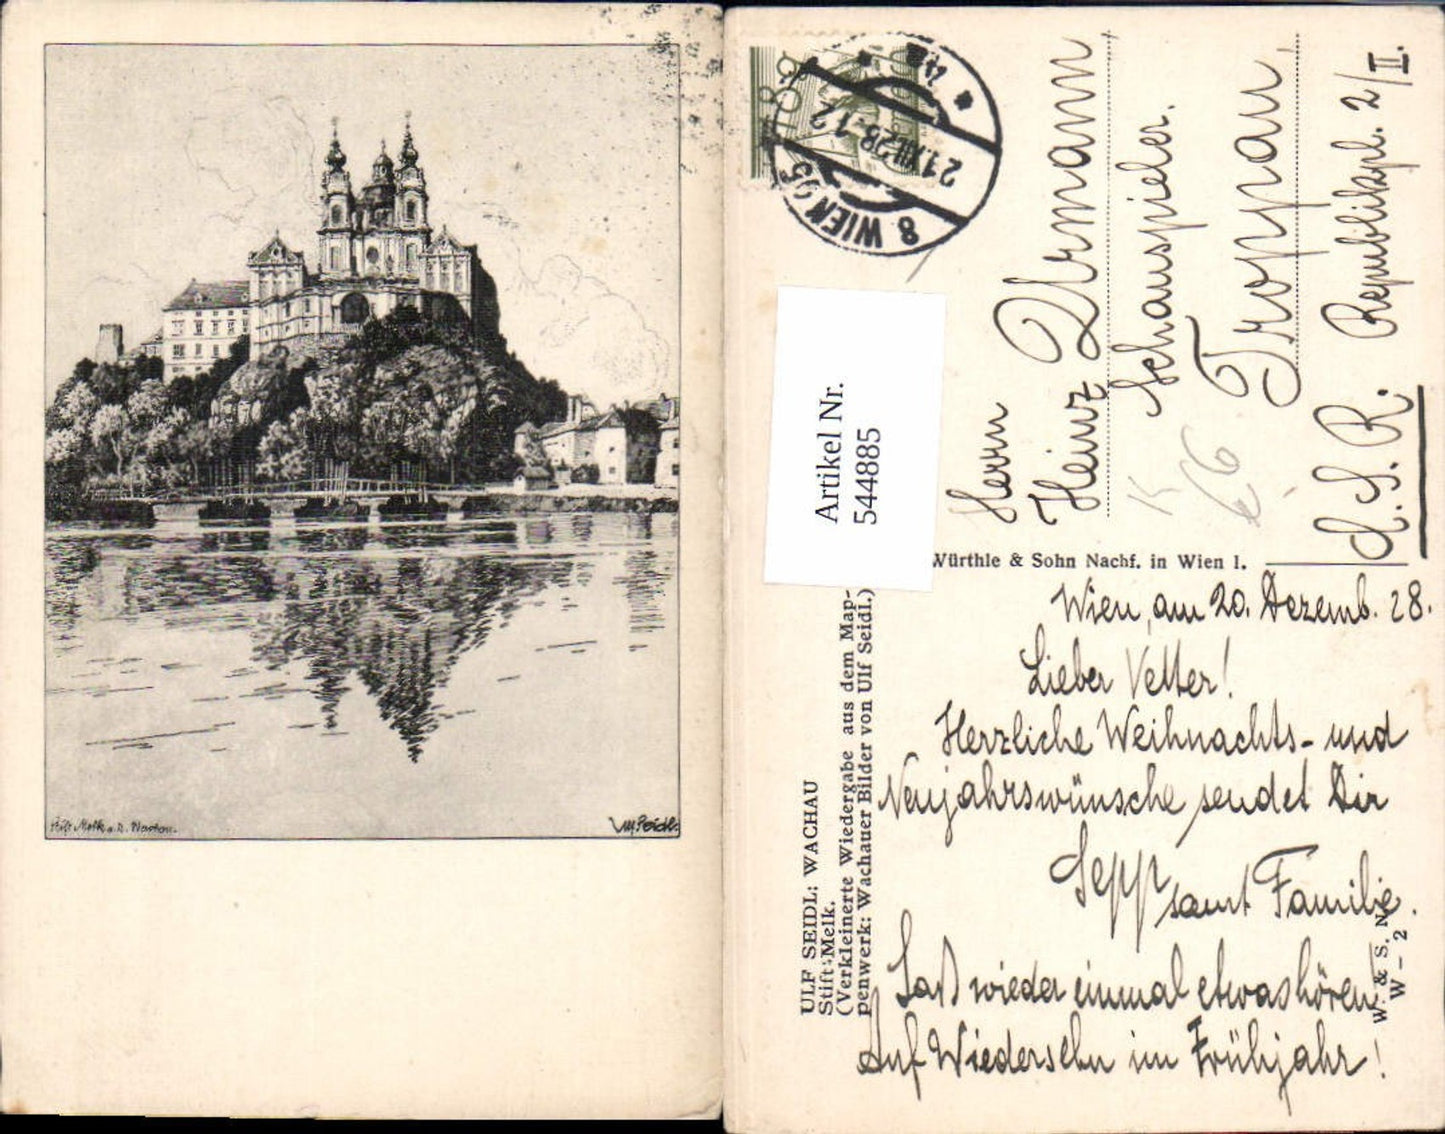 Stift Melk a. d. Wachau.
Ulf Seidl.
8 WIEN 65
21.XII.28-12
Artikel Nr.
544885
Herrn
Heinz Urmann
Schauspieler.
Troppau,
Republikapl. 2/II.
Č.S.R.
K 66
Würthle & Sohn Nachf. in Wien I.
ULF SEIDL: WACHAU
Stift Melk.
(Verkleinerte Wiedergabe aus dem Map-
penwerk: Wachauer Bilder von Ulf Seidl.)
Wien, am 20. Dezemb. 28.
Lieber Vetter!
Herzliche Weihnachts- und
Neujahrswünsche sendet Dir
Sepp samt Familie.
Laß wieder einmal etwas hören!
Auf Wiedersehn im Frühjahr!
W. & S. N.
W – 2